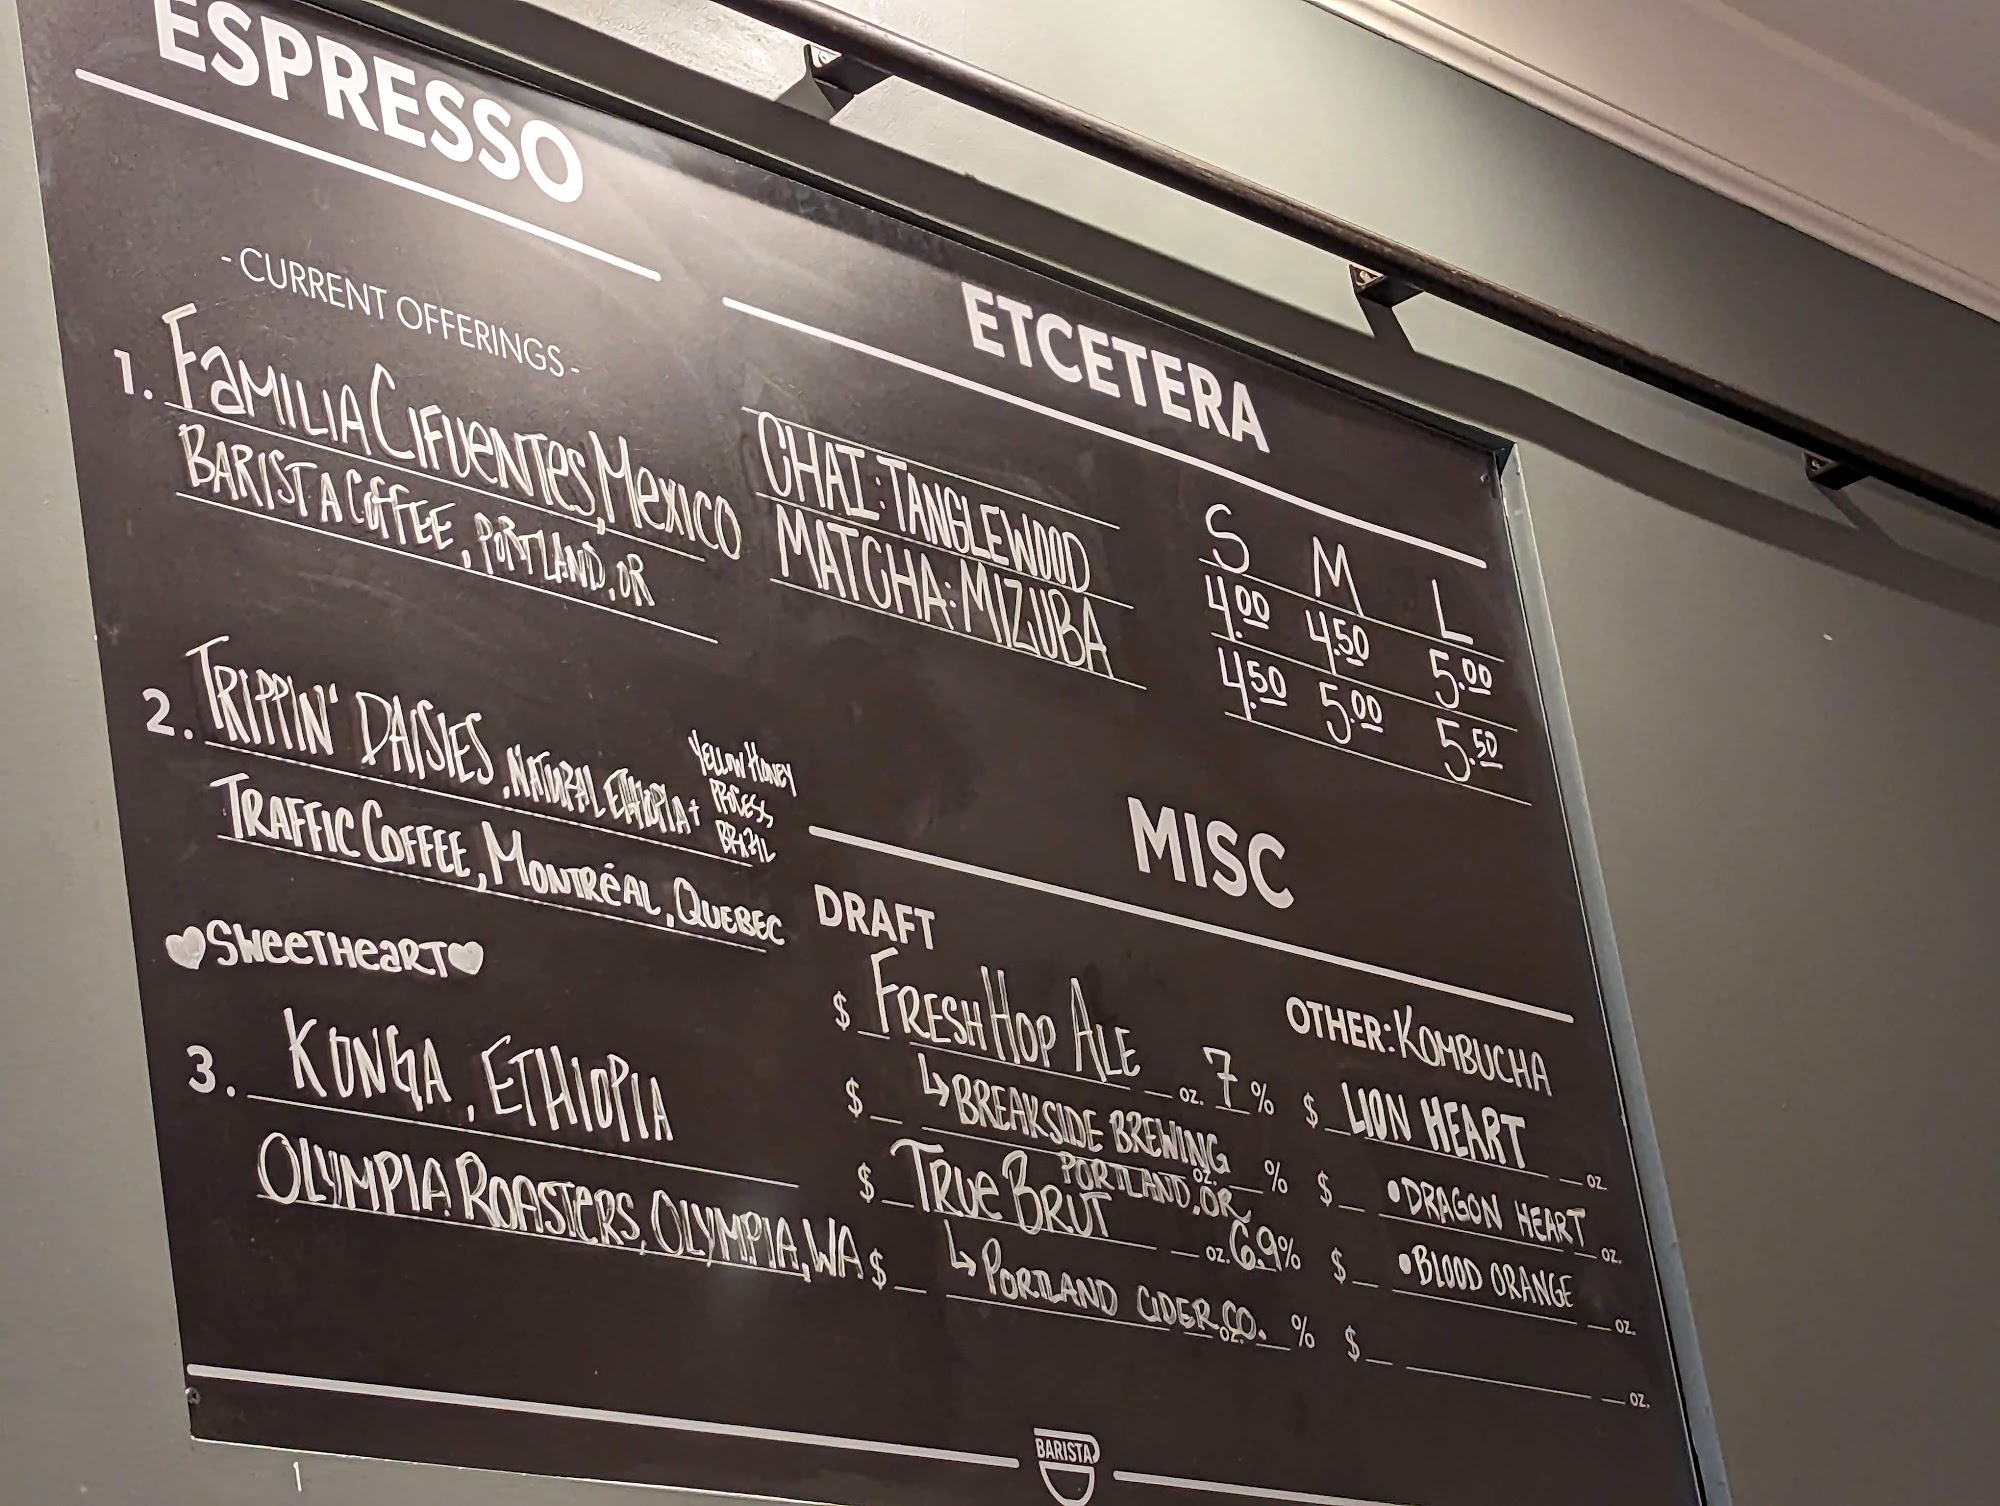 ESPRESSO
- CURRENT OFFERINGS -
1. FAMILIA CIFUENTES, MEXICO
BARISTA COFFEE, PORTLAND, OR
2. TRIPPIN' DAISIES, NATURAL ETHIOPIA + YELLOW HONEY PROCESS BRAZIL
TRAFFIC COFFEE, MONTRÉAL, QUEBEC
♥SWEETHEART♥
3. KONGA, ETHIOPIA
OLYMPIA ROASTERS, OLYMPIA, WA
ETCETERA
S M L
CHAI: TANGLEWOOD 4.00 4.50 5.00
MATCHA: MIZUBA 4.50 5.00 5.50
MISC
DRAFT
$ FRESH HOP ALE oz. 7 %
$ ↳ BREAKSIDE BREWING oz. %
PORTLAND, OR
$ TRUE BRUT oz. 6.9%
$ ↳ PORTLAND CIDER CO. oz. %
OTHER: KOMBUCHA
$ LION HEART oz
$ •DRAGON HEART oz.
$ •BLOOD ORANGE oz.
$ oz.
BARISTA